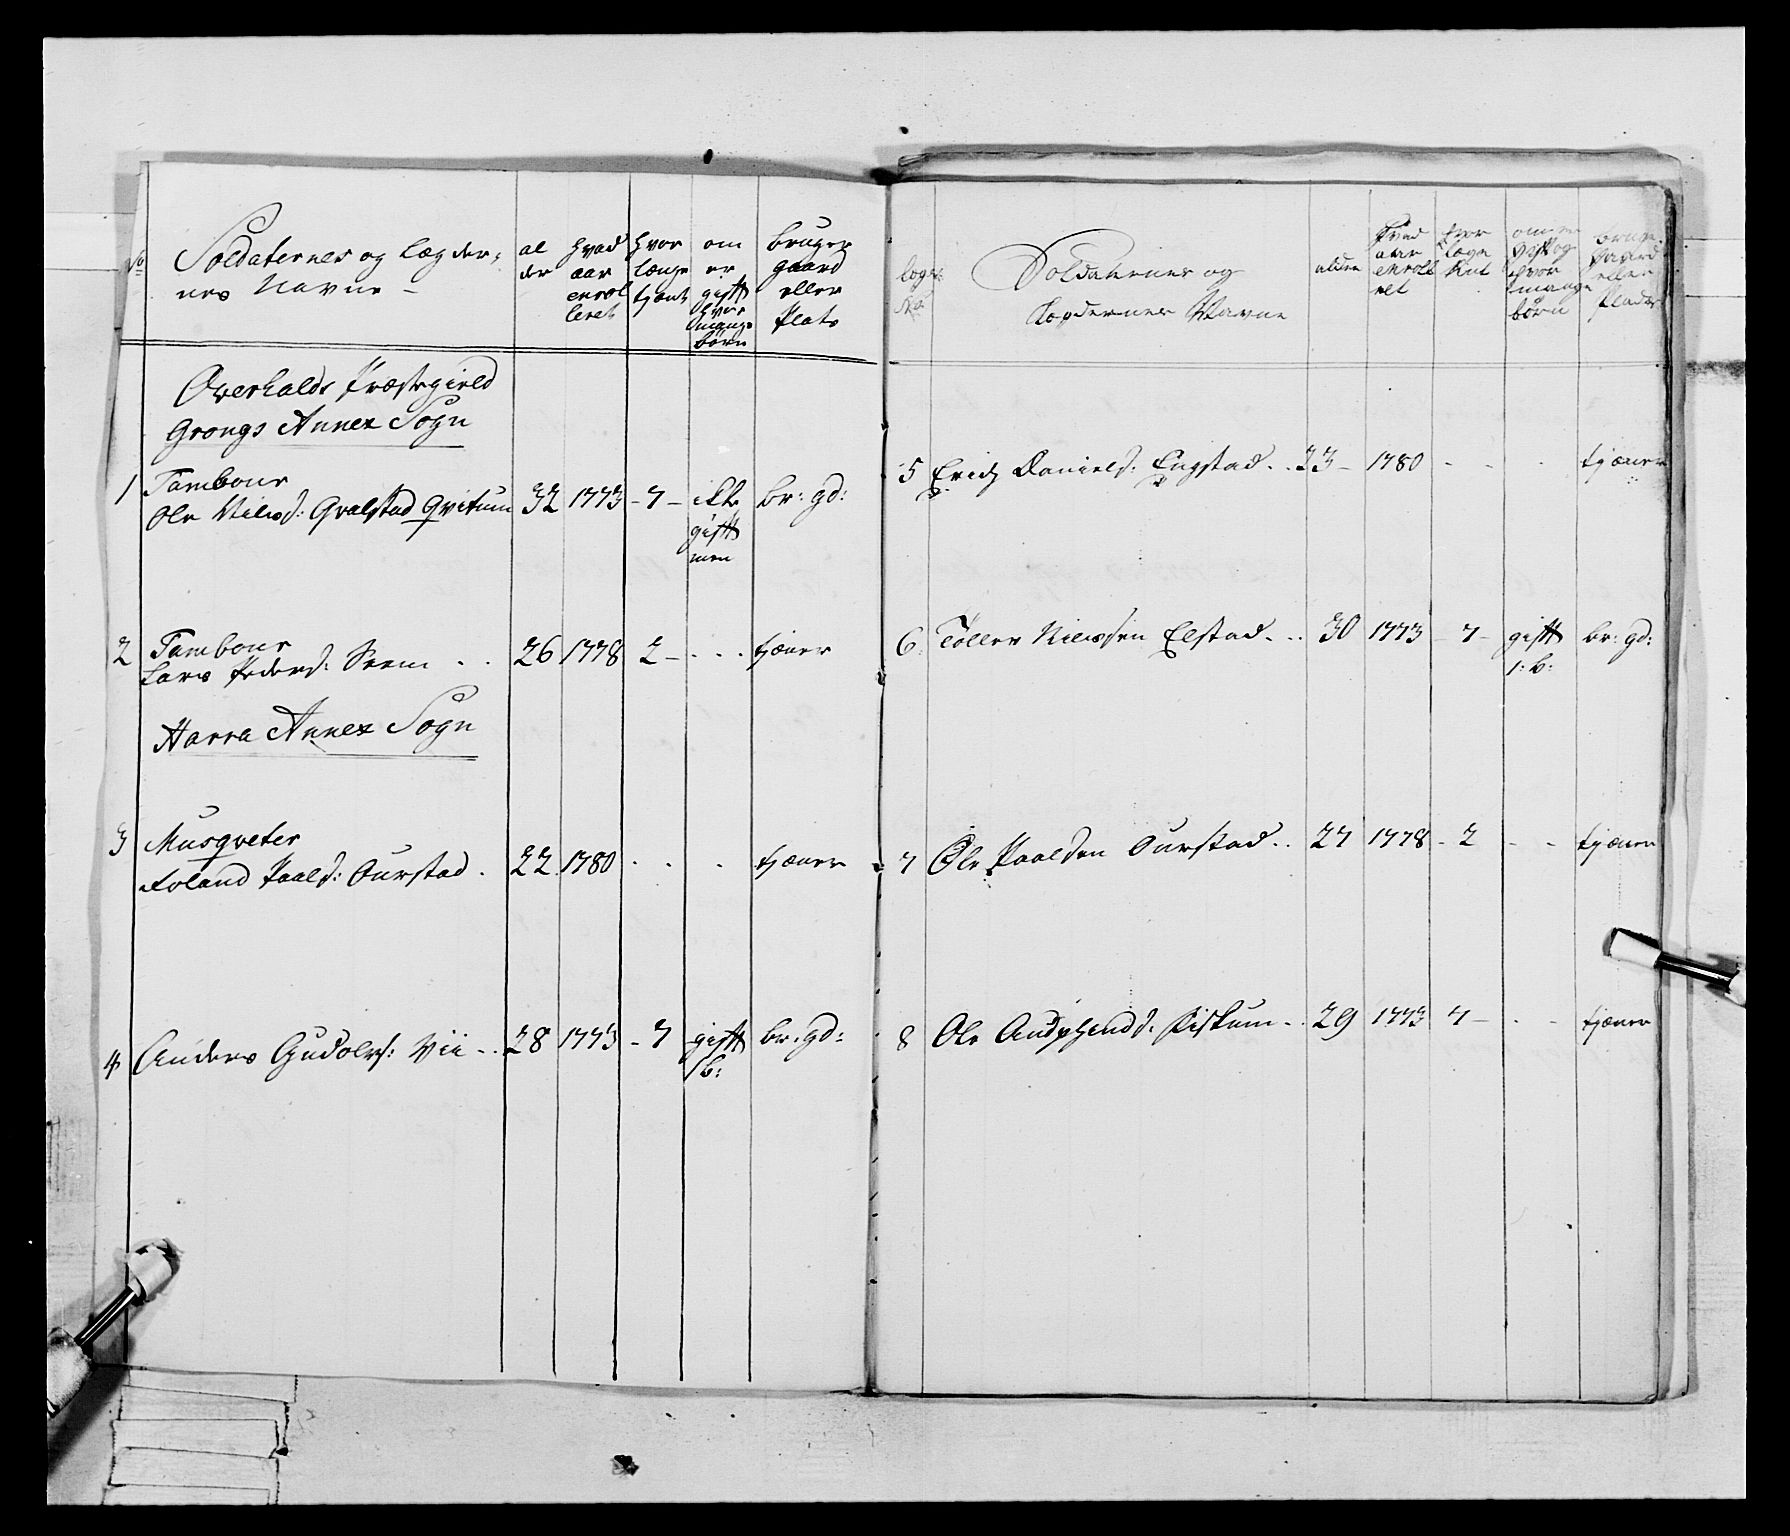 No
Soldaternes og Lægder-
nes Navne -
al
der
hvad
aar
enrol
leret
hvor
længe
tjent
om
er
gift
hvor
mange
børn
bruger
gaard
eller
Plats
Overhalds Præstegield
Grongs Annex Sogn
1 Tambour
Ole Nilss: Qvalstad Qvitum 32 1773 - 7 - ikke br: gd:
gift
men
2 Tambour
Lars Peders: Seem . . 26 1778 2 - . . . tjæner
Harra Annex Sogn
3 Musqveter
Roland Paals: Ourstad . 22 1780 . . . tjæner
4 Anders Gudolvs: Vii - . 28 1773 - 7 gift br: gd:
1 b:
Soldaternes og
Lægdernes Navne
alder
hvad
aar
enroll
ret
hvor
længe
tint
om er
gift og
hvor
mange
børn
bruger
gaard
eller
Plads
5 Erich Daniels: Engstad . . 33 - 1780 - - - tjæner
6 Toller Nilssen Elstad . . . 30 1773 - 7 - gift br: gd:
1: b:
7 Ole Paalsen Ourstad . . 27 1778 - 2 - - tjæner
8 Ole Fiskum - . 29 1773 7 - . - tjæner